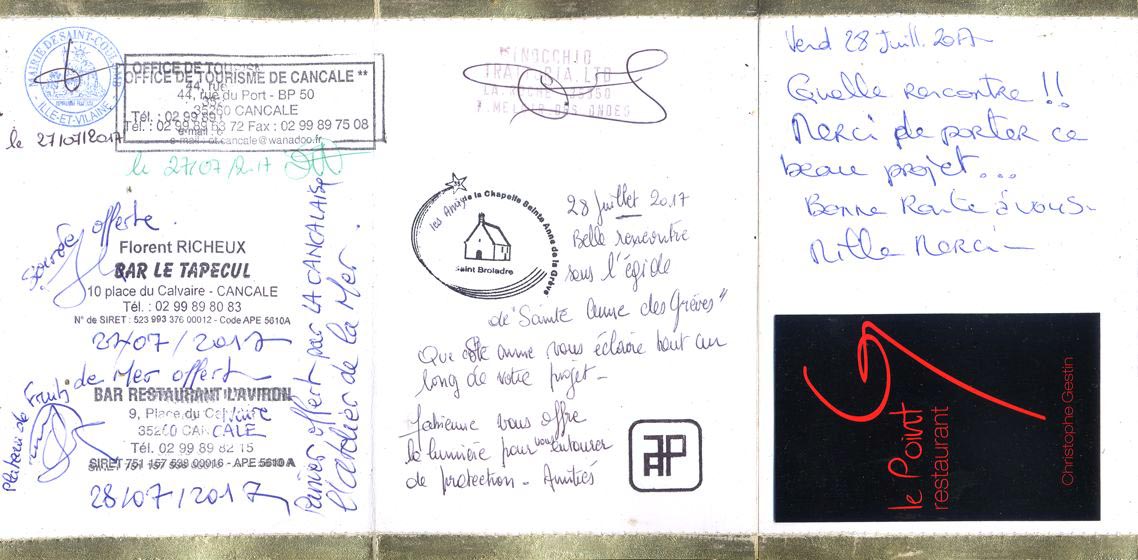 MAIRIE DE SAINT-COULOMB
ILLE-ET-VILAINE
le 27/07/2017
OFFICE DE TOURISME
OFFICE DE TOURISME DE CANCALE **
44, rue du Port - BP 50
35260 CANCALE
Tél. : 02 99 89 63 72 Fax : 02 99 89 75 08
e-mail : ot.cancale@wanadoo.fr
le 27/07/2017
Soirée offerte
Florent RICHEUX
BAR LE TAPECUL
10 place du Calvaire - CANCALE
Tél. : 02 99 89 80 83
N° de SIRET : 523 993 376 00012 - Code APE 5610A
27/07/2017
Plateau de Fruits de Mer offert
BAR RESTAURANT L'AVIRON
9, Place du Calvaire
35260 CANCALE
Tél. 02 99 89 82 15
SIRET 751 157 599 00016 - APE 5610 A
28/07/2017
Panier offert par LA CANCALAISE
L'atelier de la Mer.
PINOCCHIO
TRATTORIA.LTD
les Amis de la Chapelle Sainte Anne de la Grève
Saint Broladre
28 Juillet 2017
Belle rencontre
sous l'égide
de "Sainte Anne des Grèves"
Que cette anne vous éclaire tout au
long de votre projet -
Fabienne vous offre
la lumière pour vous entourer
de protection - Amitiés
Vend 28 Juill. 2017
Quelle rencontre !!
Merci de porter ce
beau projet...
Bonne Route à vous.
Mille Merci -
le Point G
restaurant
Christophe Gestin